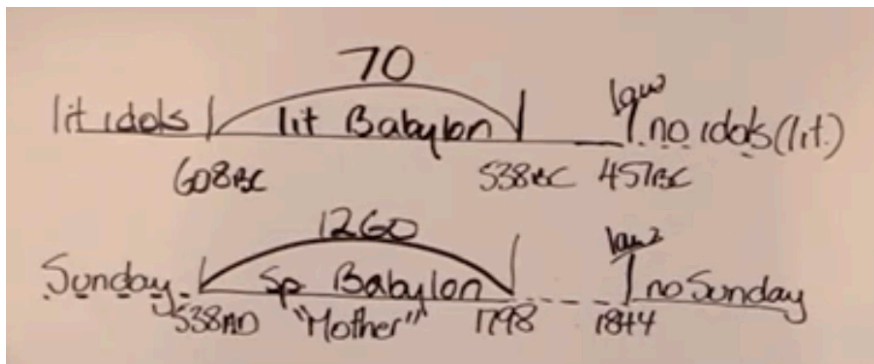 70
lit idols lit Babylon law no idols (lit.)
608 BC 538 BC 457 BC
1260
Sunday Sp Babylon law no Sunday
538 AD "Mother" 1798 1844